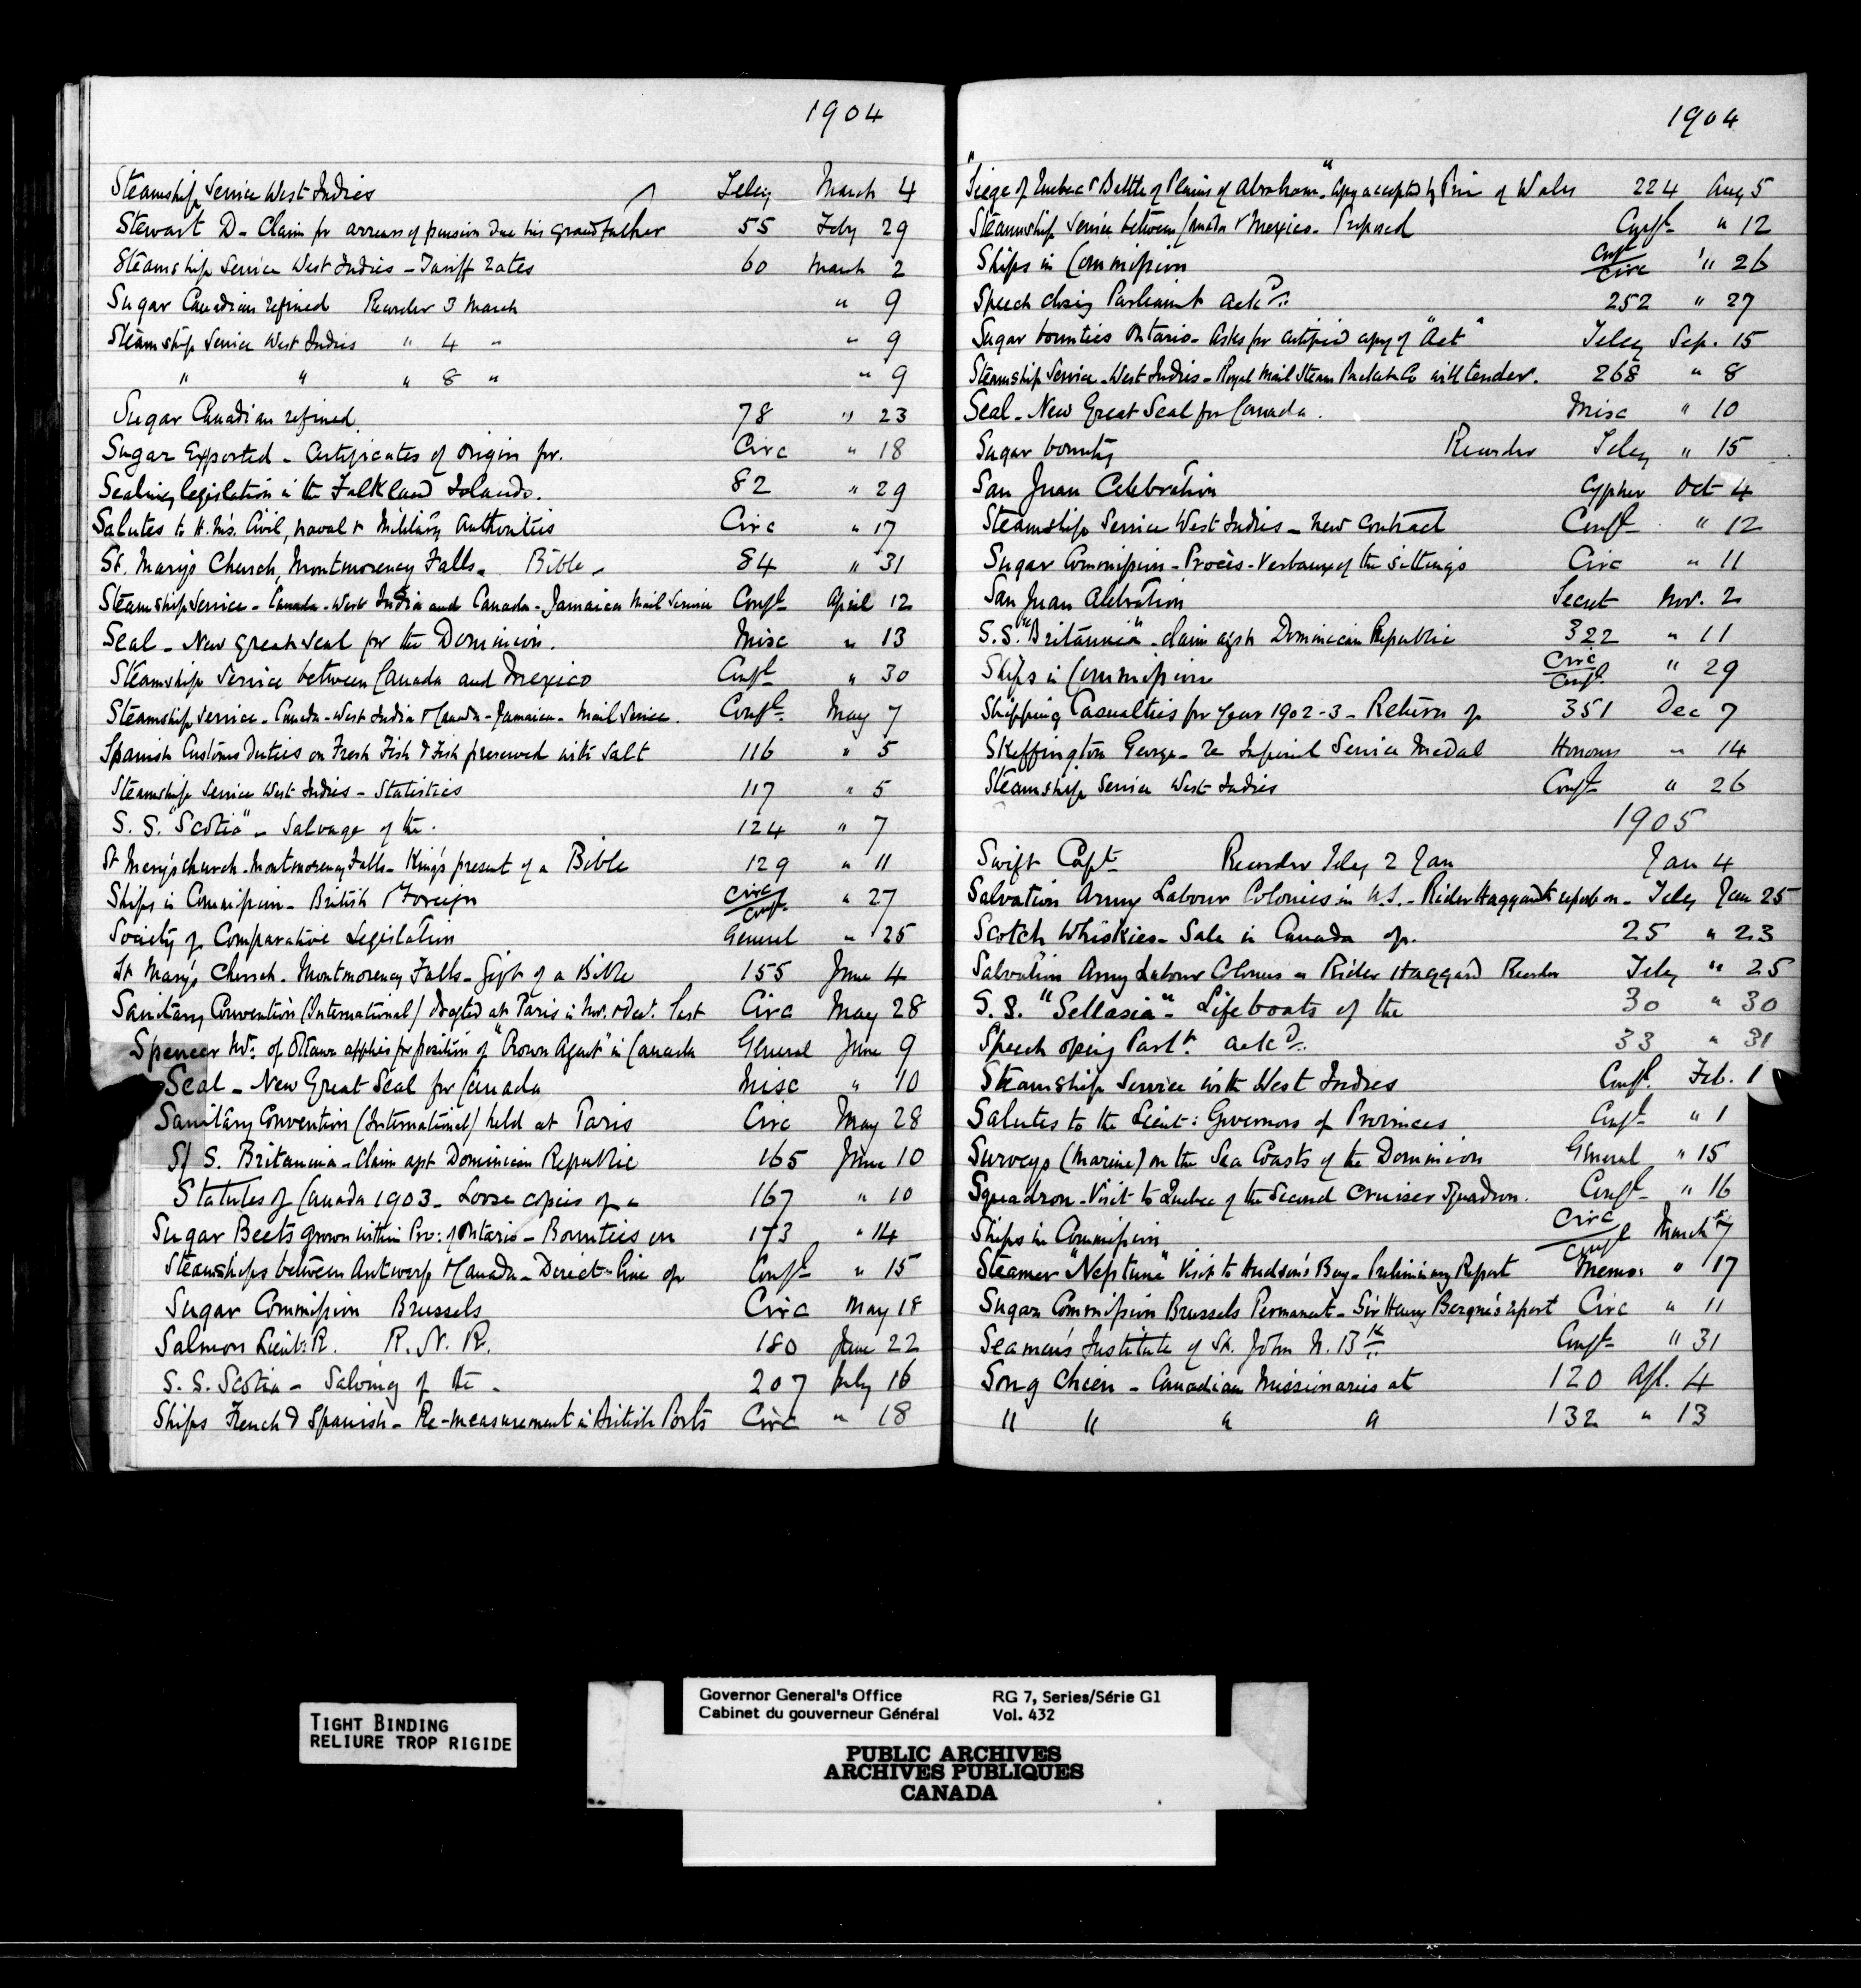 1904
Steamship Service West Indies Teleg March 4
Stewart D - Claim for arrears of pension due his grandfather 55 Feby 29
Steamship Service West Indies - Tariff rates 60 March 2
Sugar Canadian refined Reorder 3 March " 9
Steamship Service West Indies " 4 " " 9
" " " 8 " " 9
Sugar Canadian refined 78 " 23
Sugar Exported - Certificates of origin for. Circ " 18
Sealing legislation in the Falkland Islands. 82 " 29
Salutes to H.M's. Civil, naval & Military Authorities Circ " 17
St. Mary's Church, Montmorency Falls - Bible - 84 " 31
Steamship Service - Canada - West India and Canada - Jamaica Mail Service Confl April 12
Seal - New great seal for the Dominion. Misc " 13
Steamship Service between Canada and Mexico Confl " 30
Steamship Service - Canada - West India & Canada - Jamaica - Mail Service. Confl May 7
Spanish Customs Duties on Fresh Fish & Fish preserved with Salt 116 " 5
Steamship Service West Indies - Statistics 117 " 5
S. S. "Scotia" - Salvage of the. 124 " 7
St Mary's church - Montmorency Falls - King's present of a Bible 129 " 11
Ships in Commission - British & Foreign Circ/Confl " 27
Society of Comparative Legislation General " 25
St Mary's Church - Montmorency Falls - Gift of a Bible 155 June 4
Sanitary Convention (International) drafted at Paris in Nov. & Dec. last Circ May 28
Spencer Mr. of Ottawa applies for position of "Crown Agent" in Canada General June 9
Seal - New Great Seal for Canada Misc " 10
Sanitary Convention (International) held at Paris Circ May 28
S/S. Britannia - Claim agst Dominican Republic 165 June 10
Statutes of Canada 1903 - Loose copies of - 167 " 10
Sugar Beets grown within Prov: of Ontario - Bounties on 173 " 14
Steamships between Antwerp & Canada - Direct line of Confl " 15
Sugar Commission Brussels Circ May 18
Salmon Lieut: R. R. N. R. 180 June 22
S. S. Scotia - Salving of the - 207 July 16
Ships French & Spanish - Re-measurement in British Ports Circ " 18
1904
"Siege of Quebec & Battle of Plains of Abraham". Copy accepted by Prin of Wales 224 Aug 5
Steamship Service between Canada & Mexico - Proposed Confl " 12
Ships in Commission Conf/Circ " 26
Speech closing Parliament ackd. 252 " 27
Sugar bounties Ontario - Asks for certified copy of "Act" Teleg Sep. 15
Steamship Service - West Indies - Royal Mail Steam Packet Co will tender. 268 " 8
Seal - New Great Seal for Canada. Misc " 10
Sugar bounty Reorder Teleg " 15
San Juan Celebration Cypher Oct 4
Steamship Service West Indies - New Contract Confl " 12
Sugar Commission - Procès-Verbaux of the sittings Circ " 11
San Juan Celebration Secret Nov. 2
S.S. "Britannia" - Claim agst Dominican Republic 322 " 11
Ships in Commission Circ/Confl " 29
Shipping Casualties for Year 1902-3 - Return of 351 Dec 7
Skeffington George - re Imperial Service Medal Honours " 14
Steamship Service West Indies Confl " 26
1905
Swift Capt Reorder Teleg 2 Jan Jan 4
Salvation Army Labour Colonies in U.S. - Rider Haggard to report on - Teleg Jan 25
Scotch Whiskies - Sale in Canada of. 25 " 23
Salvation Army Labour Colonies - Rider Haggard Reorder Teleg " 25
S. S. "Sellasia" - Lifeboats of the 30 " 30
Speech opeing Parlt. ackd. 33 " 31
Steamship Service with West Indies Confl. Feb. 1
Salutes to the Lieut: Governors of Provinces Confl " 1
Surveys (Marine) on the Sea Coasts of the Dominion General " 15
Squadron - Visit to Quebec of the Second Cruiser Squadron. Confl " 16
Ships in Commission Circ/Confl March 7
Steamer "Neptune" Visit to Hudson's Bay - Preliminary Report Memo: " 17
Sugar Commission Brussels Permanent - Sir Henry Bergne's report Circ " 11
Seamen's Institute of St. John N. Bk. Confl " 31
Song Chien - Canadian Missionaries at 120 Apl. 4
" " " " 132 " 13
TIGHT BINDING
RELIURE TROP RIGIDE
Governor General's Office RG 7, Series/Série G1
Cabinet du gouverneur Général Vol. 432
PUBLIC ARCHIVES
ARCHIVES PUBLIQUES
CANADA